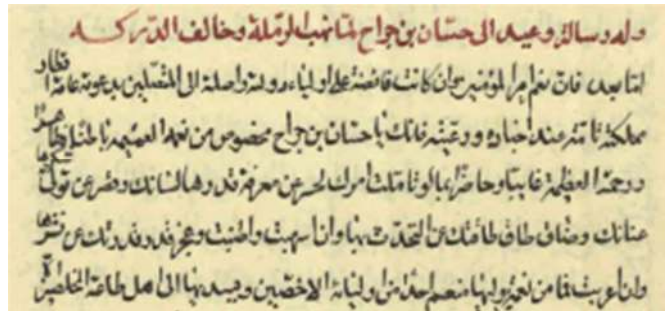 وله رسالة وعيد الى حسان بن جراح لما نهب الرملة وخالف الدركـــه
اما بعد فان نعم امير المؤمنين وان كانت فائضة على اولياء دولته واصلة الى المتصلين بدعوته عامة اقطار
مملكته تامة عند اجناده ورعيته فانك يا حسان بن جراح مخصوص من نعمه العميمة
العظيمة غايبا وحاضرا بما لو تاملت امرك لحسر عن معرفة قدرها لسانك وقصر عن
عنانك وضاق طاق طاقتك عن التحدث بها وان اسهبت واطنبت وعجز قدر قدرتك عن نشرها
وان اعربت فما من نعمة يوليها منعم احدا من اوليائه الاخصين ويسديها الى اهل طاعة